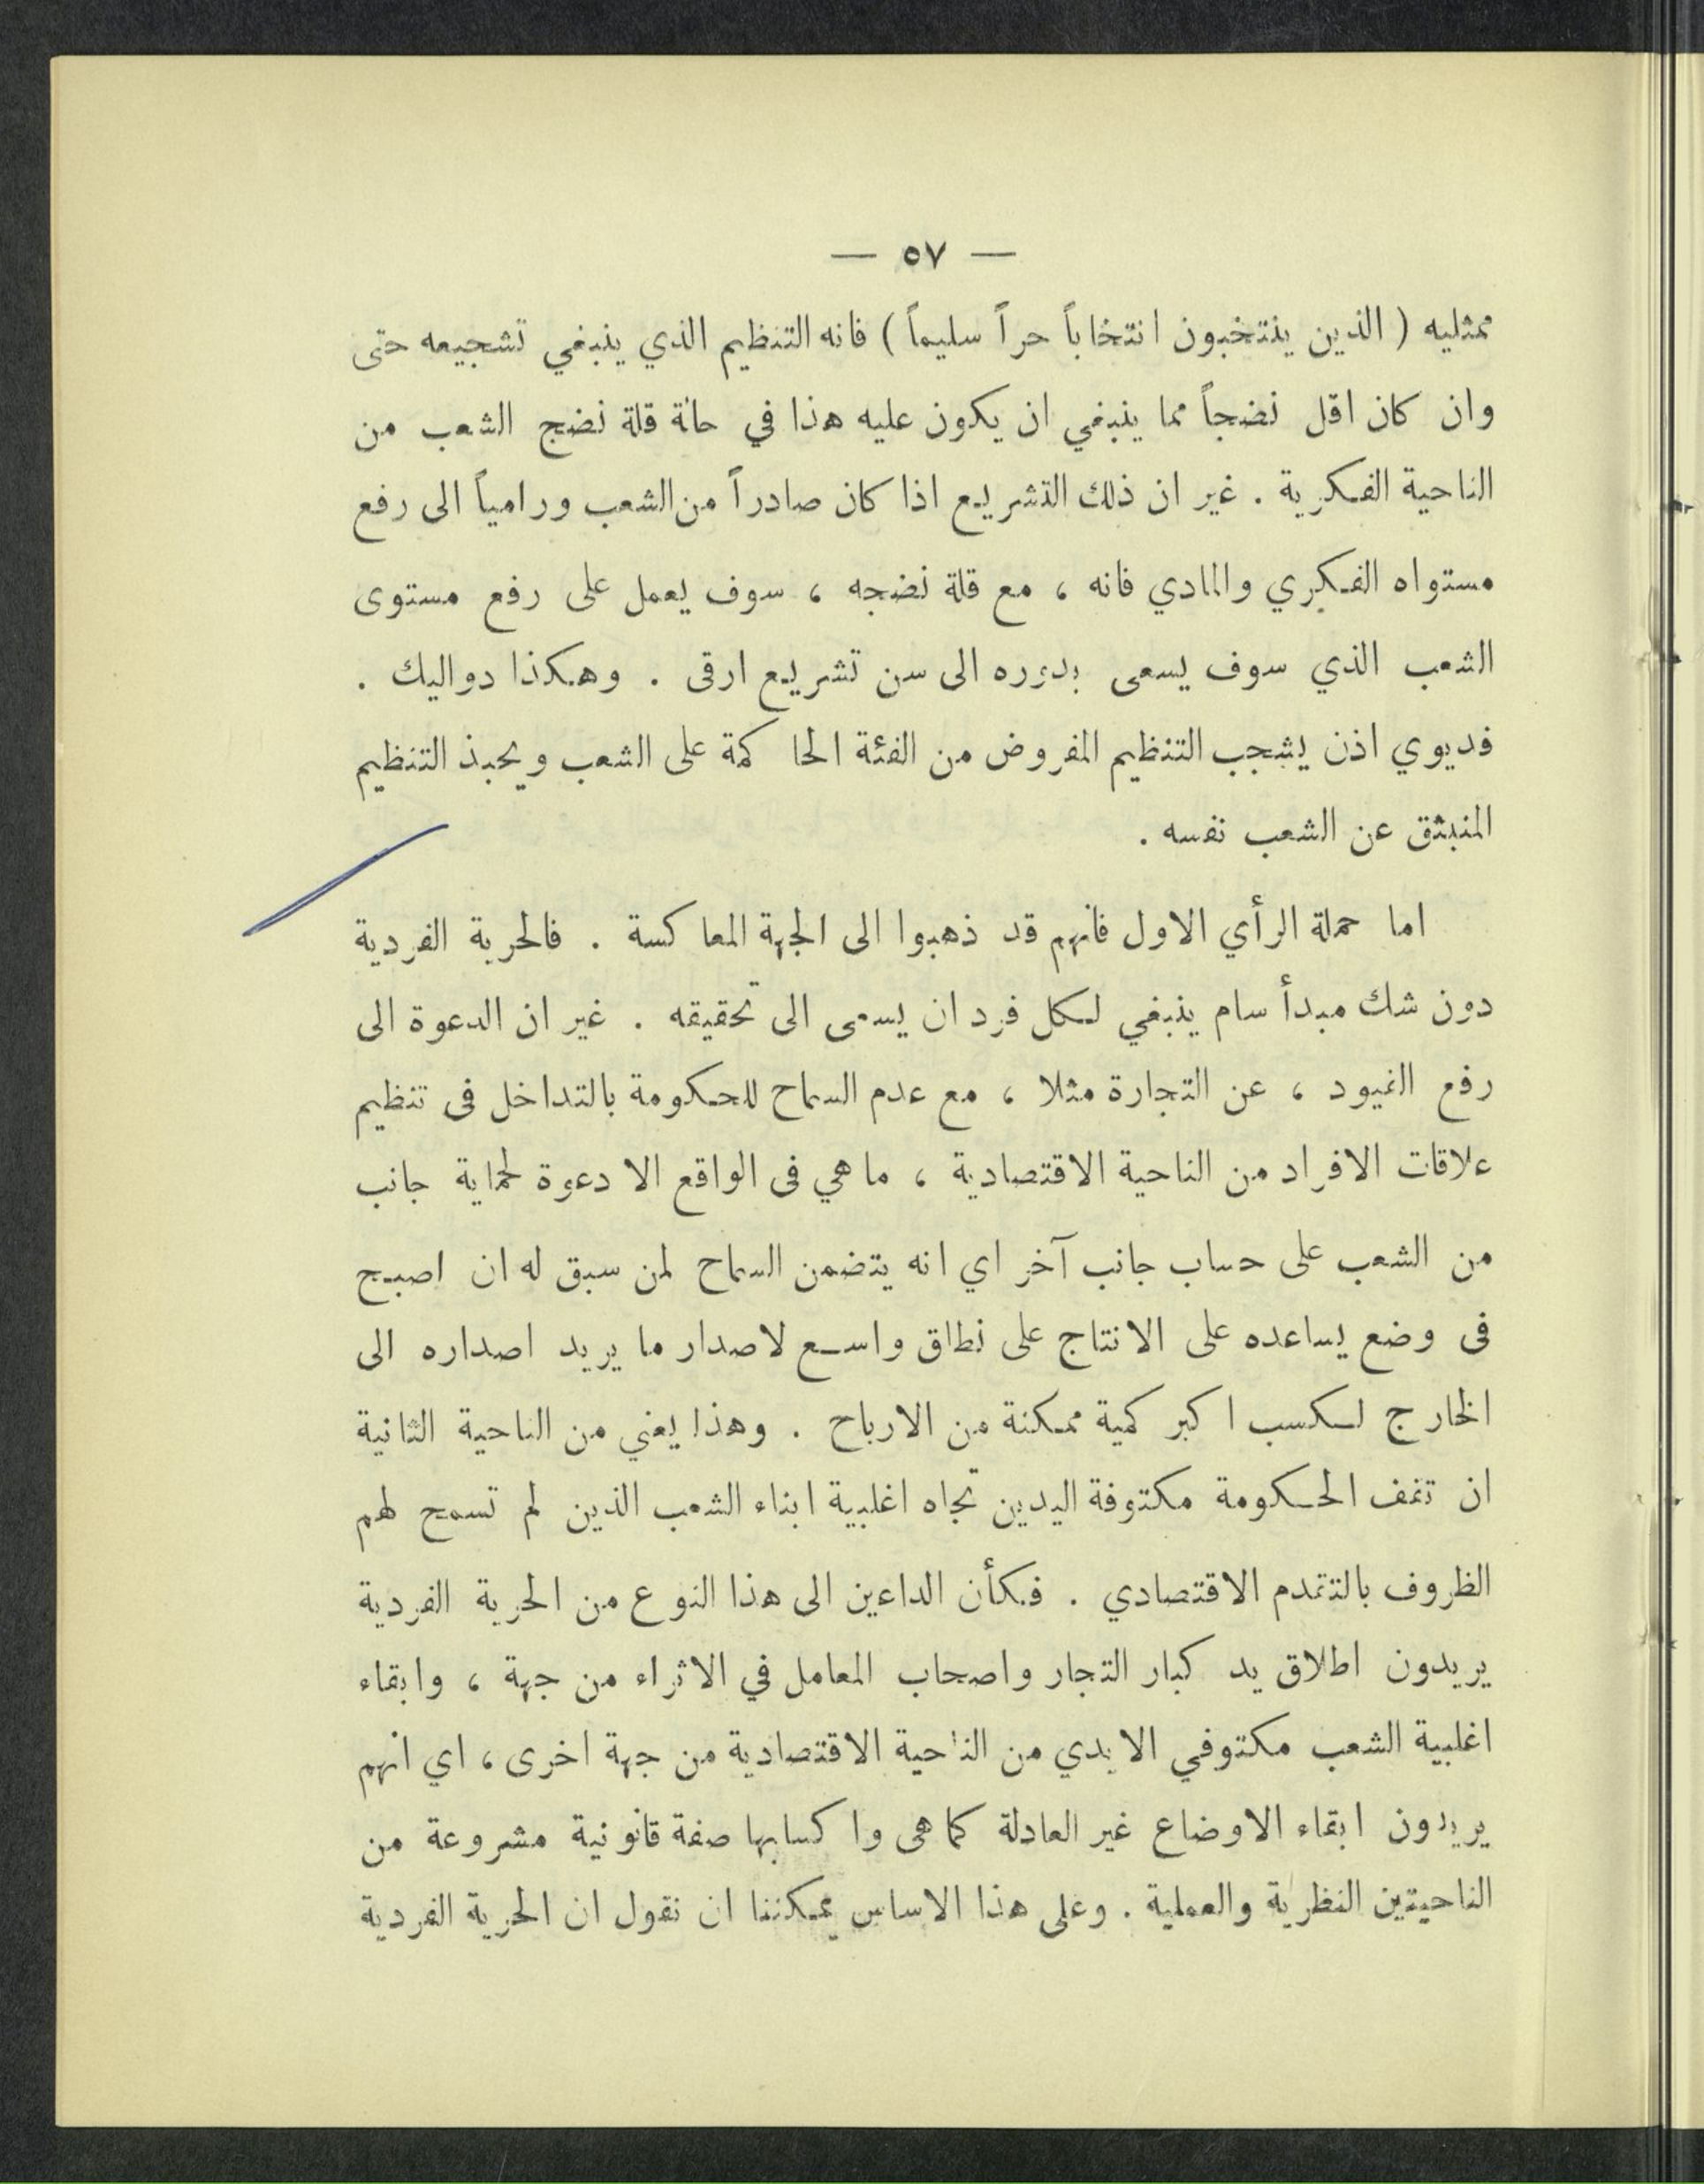 — ٥٧ —
ممثليه ( الذين ينتخبون انتخاباً حراً سليماً ) فانه التنظيم الذي ينبغي تشجيعه حتى
وان كان اقل نضجاً مما ينبغي ان يكون عليه هذا في حالة قلة نضج الشعب من
الناحية الفكرية . غير ان ذلك التشريع اذا كان صادراً من الشعب ورامياً الى رفع
مستواه الفكري والمادي فانه ، مع قلة نضجه ، سوف يعمل على رفع مستوى
الشعب الذي سوف يسعى بدوره الى سن تشريع ارقى . وهكذا دواليك .
فديوي اذن يشجب التنظيم المفروض من الفئة الحاكمة على الشعب ويحبذ التنظيم
المنبثق عن الشعب نفسه .
اما حملة الرأي الاول فانهم قد ذهبوا الى الجهة المعاكسة . فالحرية الفردية
دون شك مبدأ سام ينبغي لكل فرد ان يسعى الى تحقيقه . غير ان الدعوة الى
رفع القيود ، عن التجارة مثلا ، مع عدم السماح للحكومة بالتداخل فى تنظيم
علاقات الافراد من الناحية الاقتصادية ، ما هي فى الواقع الا دعوة لحماية جانب
من الشعب على حساب جانب آخر اي انه يتضمن السماح لمن سبق له ان اصبح
فى وضع يساعده على الانتاج على نطاق واسع لاصدار ما يريد اصداره الى
الخارج لكسب اكبر كمية ممكنة من الارباح . وهذا يعني من الناحية الثانية
ان تقف الحكومة مكتوفة اليدين تجاه اغلبية ابناء الشعب الذين لم تسمح لهم
الظروف بالتقدم الاقتصادي . فكأن الداعين الى هذا النوع من الحرية الفردية
يريدون اطلاق يد كبار التجار واصحاب المعامل في الاثراء من جهة ، وابقاء
اغلبية الشعب مكتوفي الايدي من الناحية الاقتصادية من جهة اخرى ، اي انهم
يريدون ابقاء الاوضاع غير العادلة كما هى واكسابها صفة قانونية مشروعة من
الناحيتين النظرية والعملية . وعلى هذا الاساس يمكننا ان نقول ان الحرية الفردية